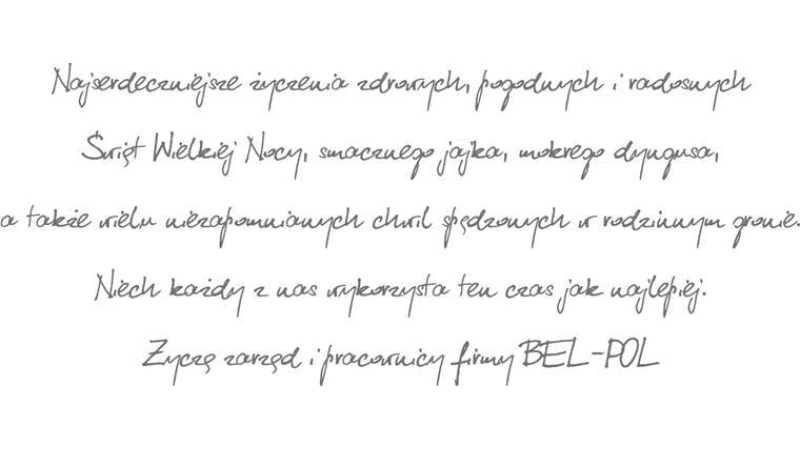 Najserdeczniejsze życzenia zdrowych, pogodnych i radosnych
Świąt Wielkiej Nocy, smacznego jajka, mokrego dyngusa,
a także wielu niezapomnianych chwil spędzonych w rodzinnym gronie.
Niech każdy z nas wykorzysta ten czas jak najlepiej.
Życzę zarząd i pracownicy firmy BEL-POL